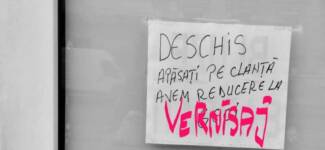 DESCHIS
APĂSAȚI PE CLANȚĂ
AVEM REDUCERE LA
VERNISAJ